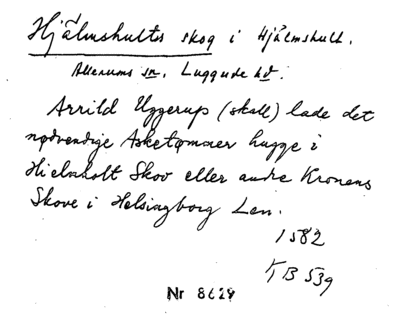 Hjälmshults skog i Hjälmshult.
Allerums sn. Luggude hd.
Arrild Uggerup (skall) lade det
nødvendige Asketømmer hugge i
Hielmholt Skov eller andre Kronens
Skove i Helsingborg Len.
1582
KB 539
Nr 8629